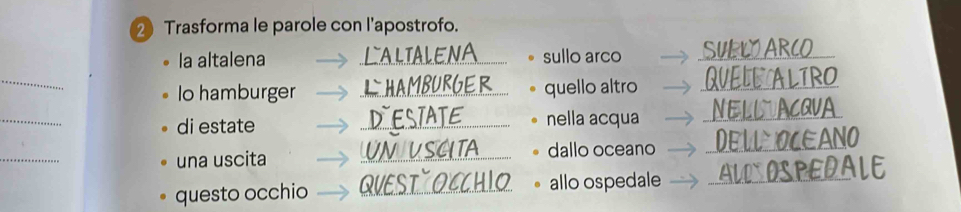 2 Trasforma le parole con l'apostrofo.
• la altalena → L'ALTALENA • sullo arco → SULL'ARCO
• lo hamburger → L'HAMBURGER • quello altro → QUELL'ALTRO
• di estate → D'ESTATE • nella acqua → NELL'ACQUA
• una uscita → UN'USCITA • dallo oceano → DELL'OCEANO
• questo occhio → QUEST'OCCHIO • allo ospedale → ALL'OSPEDALE